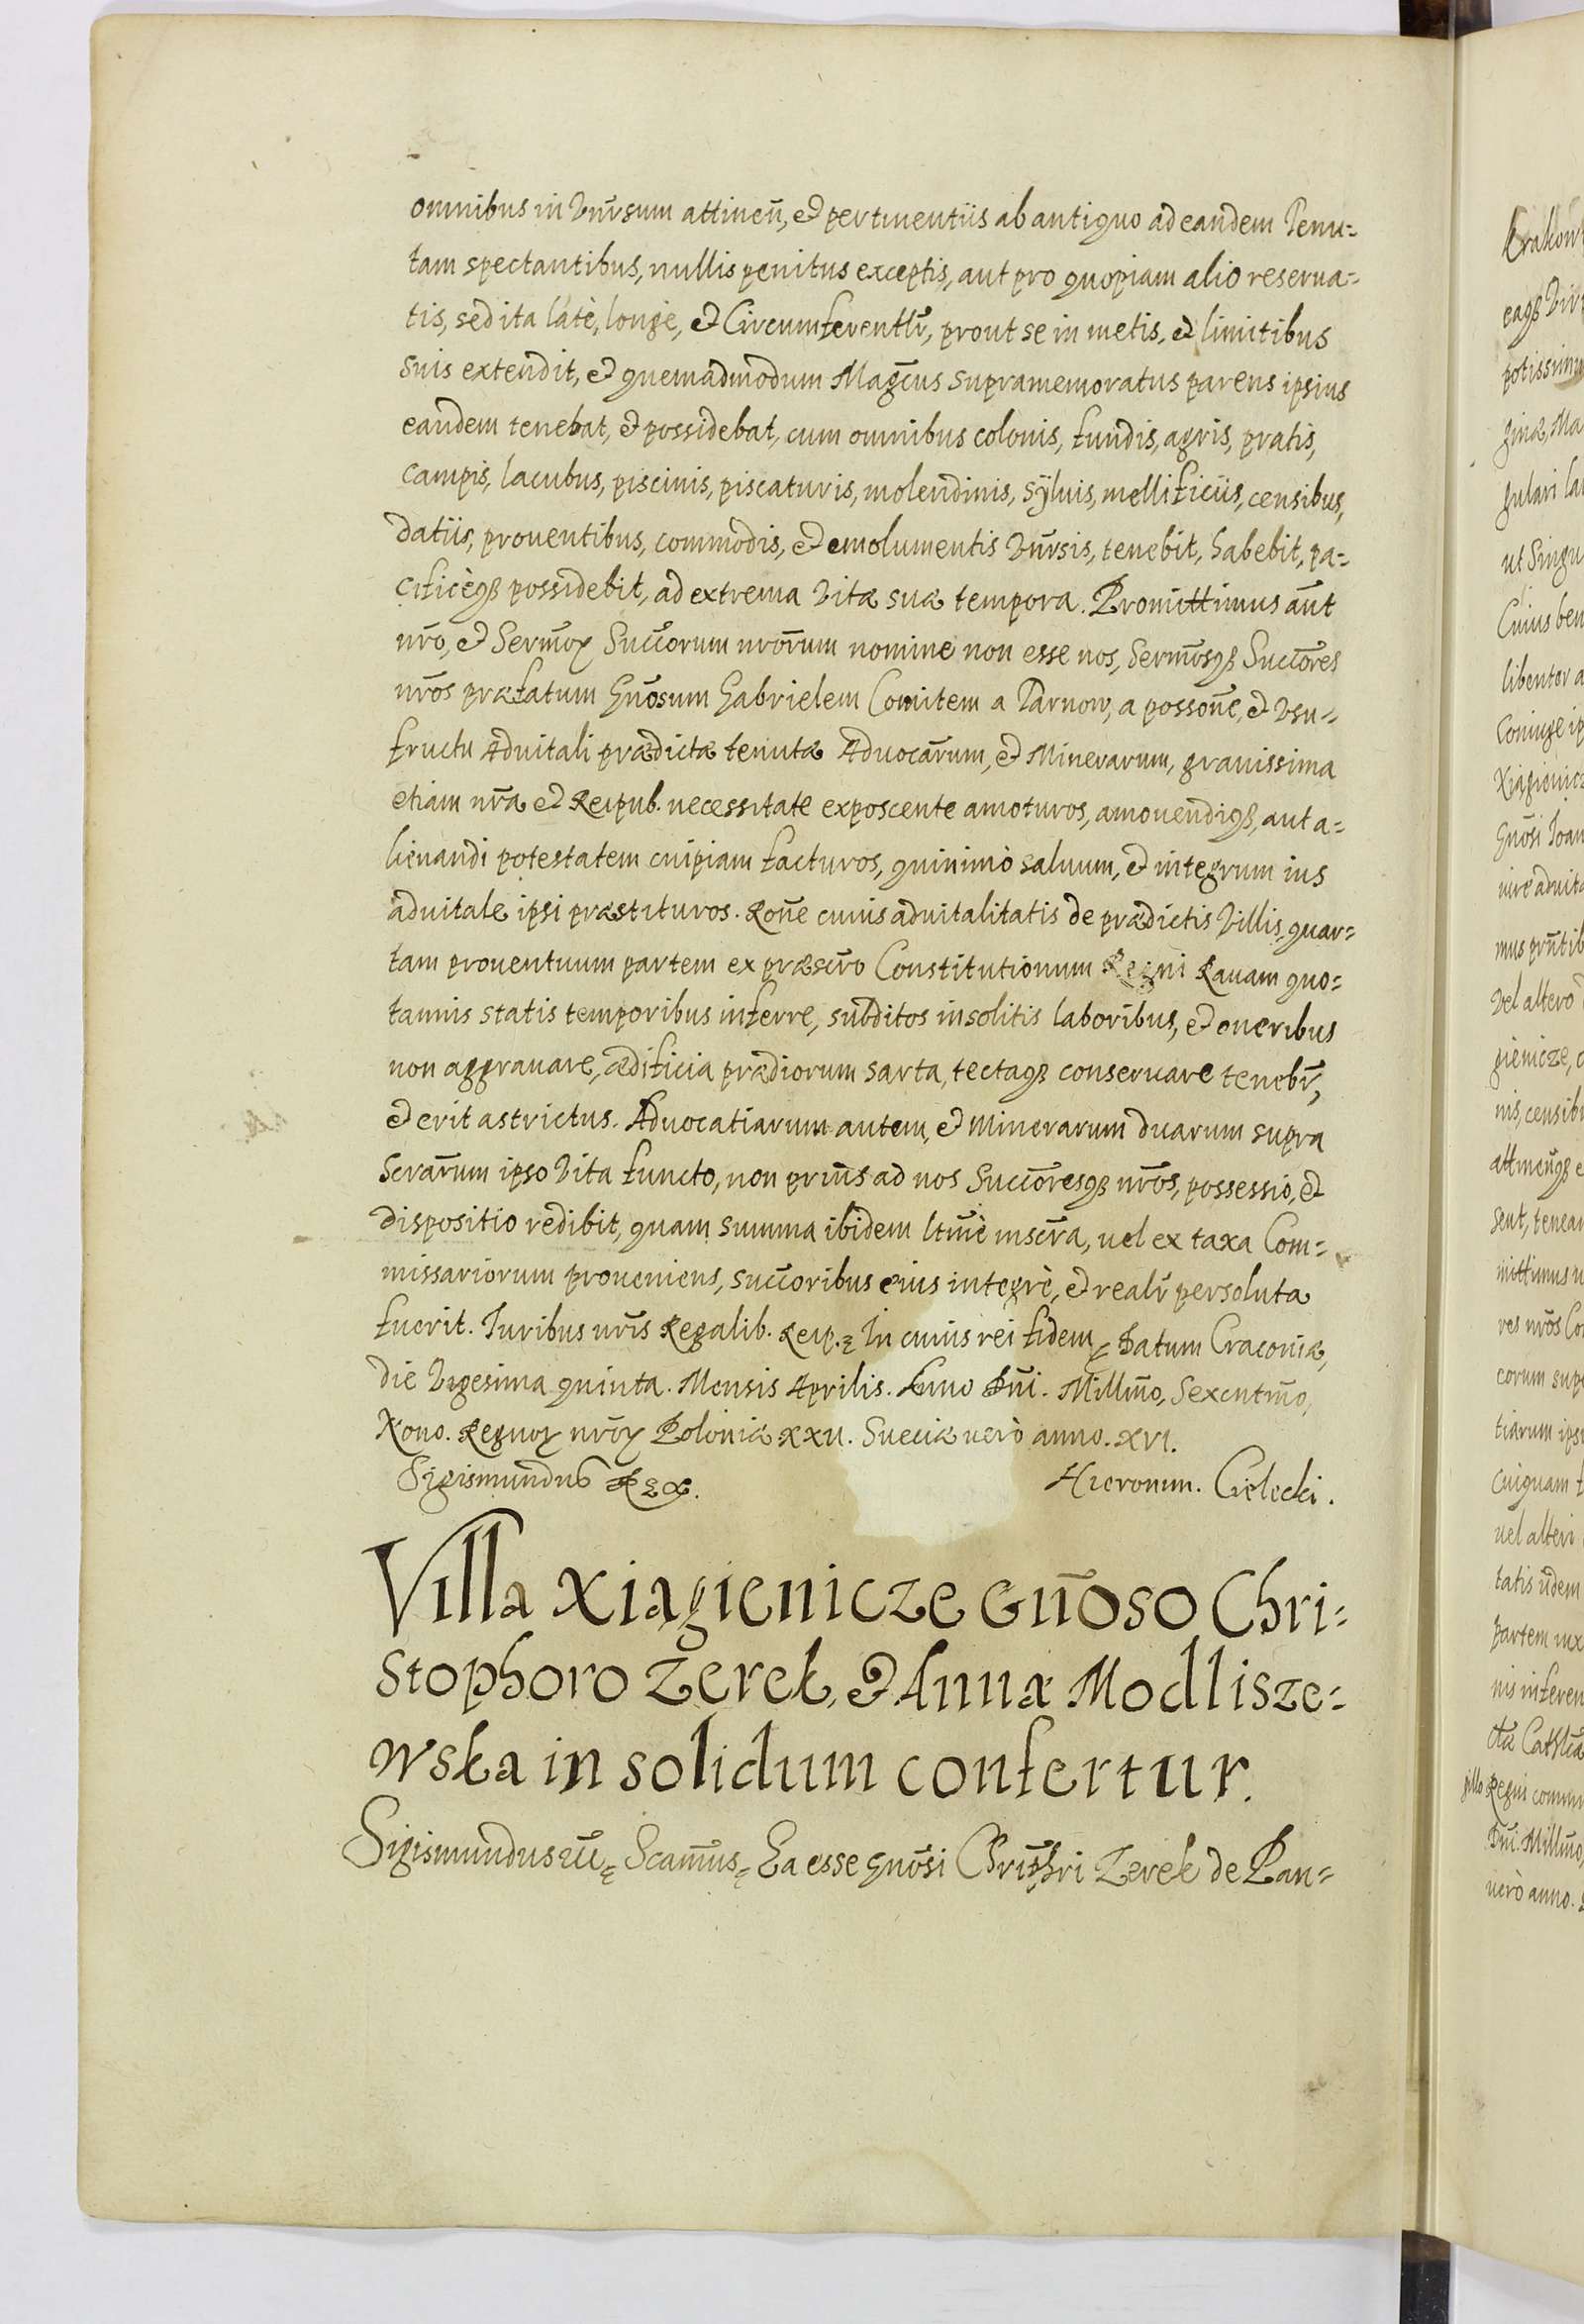 omnibus in Vnr̃sum attineñ, et pertinentiis ab antiquo ad eandem Tenu=
tam spectantibus, nullis penitus exceptis, aut pro quopiam alio reserua=
tis, sed ita latè, longè, et Circumferentlr̃, prout se in metis, et limitibus
suis extendit, et quemadmodum Mag̃cus supramemoratus parens ipsius
eandem tenebat, et possidebat, cum omnibus colonis, fundis, agris, pratis,
campis, lacubus, piscinis, piscaturis, molendinis, sÿluis, mellificiis, censibus,
datiis, prouentibus, commodis, et emolumentis Vnr̃sis, tenebit, habebit, pa=
cificèqꝫ possidebit, ad extrema Vitæ suæ tempora. Promittimus aũt
nr̃o, et Serm̃oꝝ Succ̃orum nrõrum nomine non esse nos, Serm̃osqꝫ Succ̃ores
nr̃os præfatum Gnõsum Gabrielem Comitem a Tarnow, a possoñe, et Vsu=
fructu Aduitali prædictæ tenutæ Aduocar̃um, et Minerarum, grauissima
etiam nr̃a et Reipub. necessitate exposcente amoturos, amouendiqꝫ, aut a=
lienandi potestatem cuipiam facturos, quinimò saluum, et integrum ius
aduitale ipsi præstituros. Roñe cuius aduitalitatis de prædictis Villis, quar=
tam prouentuum partem ex præscr̃o Constitutionum Regni Rauam quo=
tannis statis temporibus inferre, subditos insolitis laboribus, et oneribus
non aggrauare, ædificia prædiorum sarta, tectaqꝫ conseruare tenebr̃,
et erit astrictus. Aduocatiarum autem, et Minerarum duarum supra
Scrar̃um ipso Vita functo, non priũs ad nos Succ̃oresqꝫ nr̃os, possessio, et
dispositio redibit, quam summa ibidem ltm̃è inscr̃a, uel ex taxa Com=
missariorum proueniens, succ̃oribus eius integrè, et realr̃ persoluta
fuerit. Iuribus nr̃is Regalib. Reip. ꝫ In cuius rei fidem ꝫ Datum Cracouiæ,
die Vigesima quinta. Mensis Aprilis. Anno Dñi. Millm̃o, Sexcentm̃o,
Nono. Regnoꝝ nr̃oꝝ Poloniæ XXII. Sueciæ uerò anno. XVI.
Sigismundus Rex. Hieronim. Cielecki.
Villa Xiagienicze Gñoso Chri=
stophoro Zerek, et Annæ Modlisze=
wska in solidum confertur.
Sigismundus ꝫ Scam̃us ꝫ Ea esse gnõsi Christ̃phri Zerek de Pan=